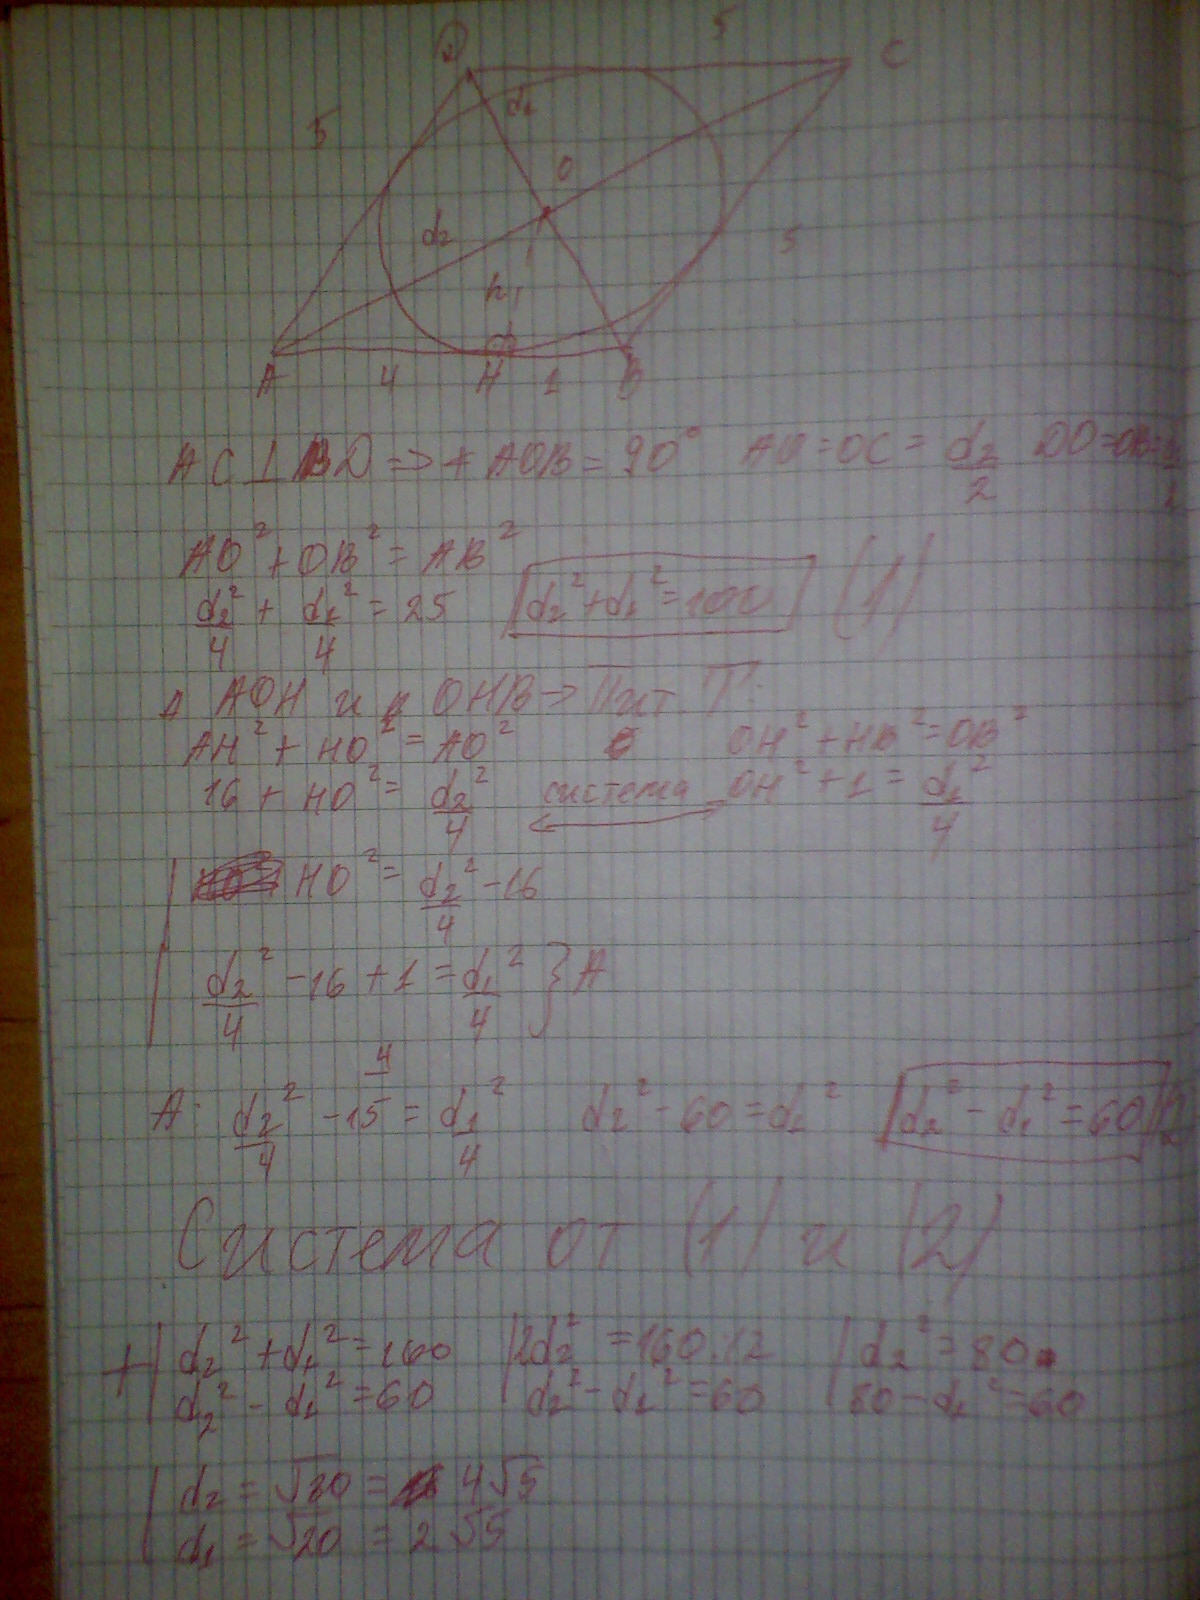 D 5 C
5 d₁
O
d₂ 5
h
A 4 H 1 B
AC ⊥ BD => ∢ AOB = 90° AO = OC = d₂/2 DO = OB =
AO² + OB² = AB²
d₂²/4 + d₁²/4 = 25 d₂² + d₁² = 100 (1)
Δ AOH и Δ OHB -> Пит. Т:
AH² + HO² = AO² OH² + HB² = OB²
16 + HO² = d₂²/4 система OH² + 1 = d₁²/4
HO² = d₂²/4 - 16
d₂²/4 - 16 + 1 = d₁²/4 } A
4
A: d₂²/4 - 15 = d₁²/4 d₂² - 60 = d₁² d₂² - d₁² = 60 (2)
Система от (1) и (2)
+ | d₂² + d₁² = 100 | 2d₂² = 160 :|2 | d₂² = 80
d₂² - d₁² = 60 d₂² - d₁² = 60 80 - d₁² = 60
d₂ = √80 = 4√5
d₁ = √20 = 2√5